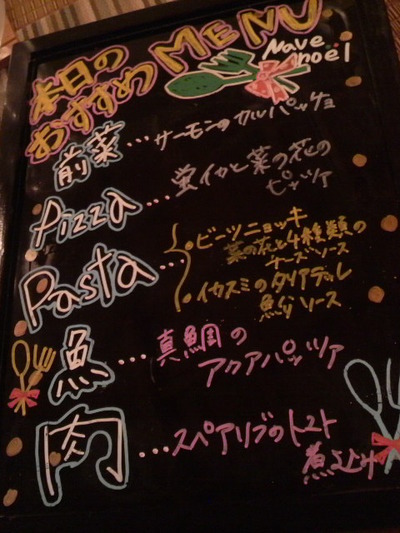 本日の
おすすめ MENU
Nave
noël
前菜…サーモンのカルパッチョ
Pizza…蛍イカと菜の花の
ピッツァ
Pasta…
・ビーツニョッキ
菜の花と4種類の
チーズソース
・イカスミのタリアテッレ
魚介ソース
魚…真鯛の
アクアパッツァ
肉…スペアリブのトマト
煮込み